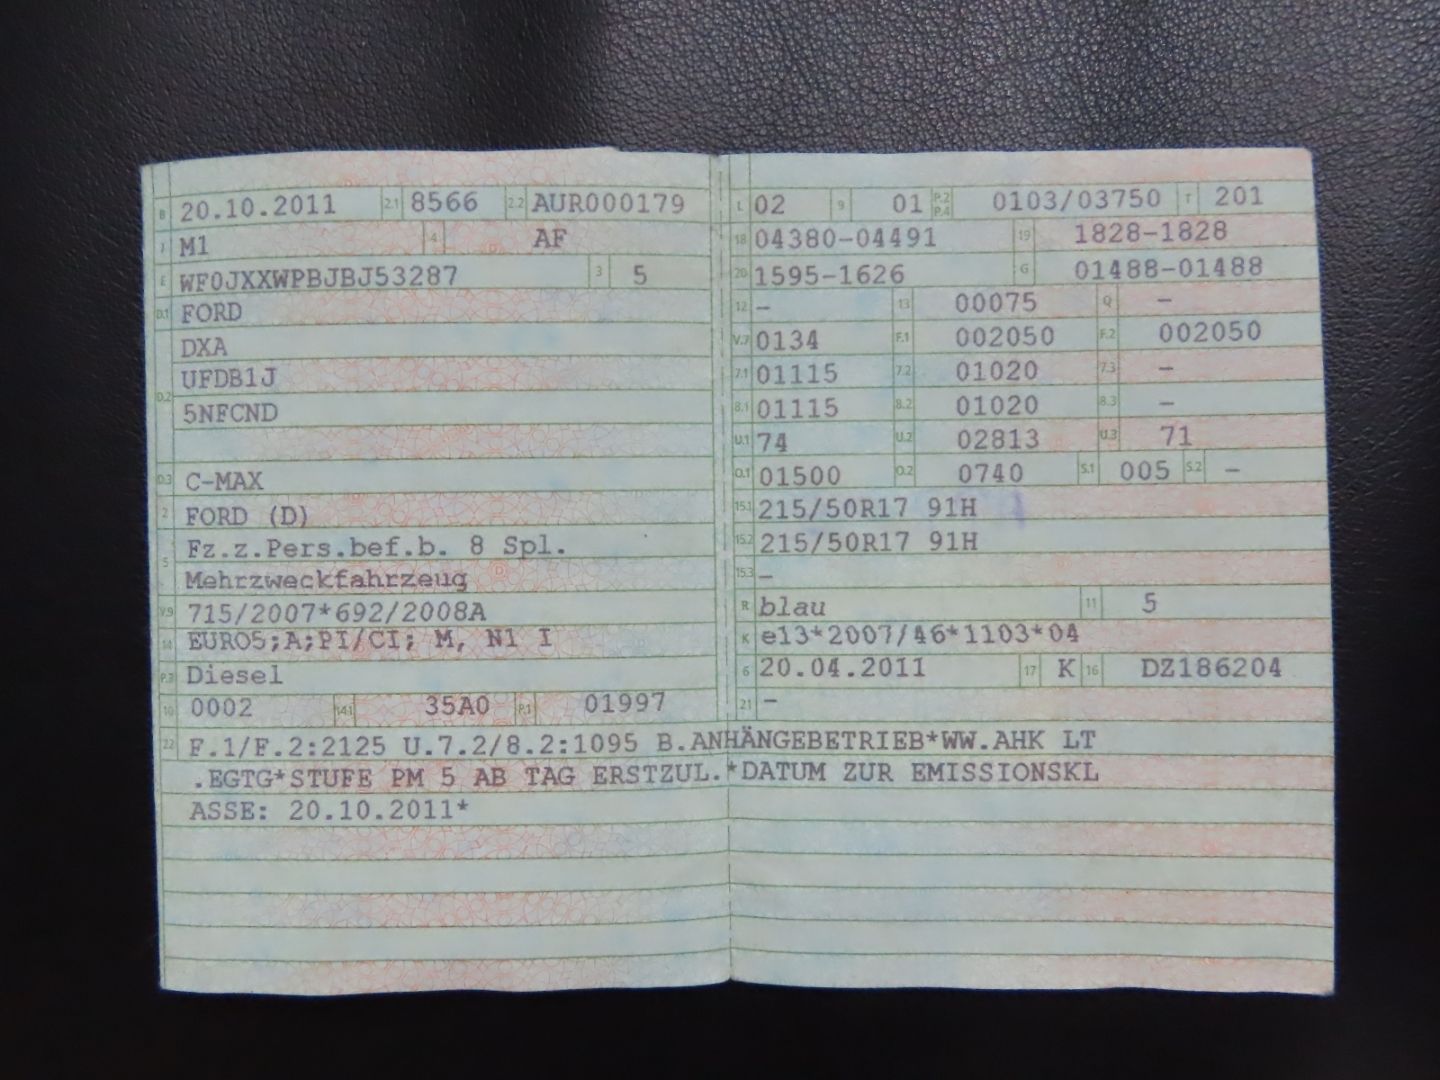 B 20.10.2011 2.1 8566 2.2 AUR000179
J M1 4 AF
E WF0JXXWPBJBJ53287 3 5
D.1 FORD
DXA
D.2 UFDB1J
5NFCND
D.3 C-MAX
2 FORD (D)
5 Fz.z.Pers.bef.b. 8 Spl.
Mehrzweckfahrzeug
V.9 715/2007*692/2008A
14 EURO5;A;PI/CI; M, N1 I
P.3 Diesel
10 0002 14.1 35A0 P.1 01997
L 02 9 01 P.2 P.4 0103/03750 T 201
18 04380-04491 19 1828-1828
20 1595-1626 G 01488-01488
12 - 13 00075 Q -
V.7 0134 F.1 002050 F.2 002050
7.1 01115 7.2 01020 7.3 -
8.1 01115 8.2 01020 8.3 -
U.1 74 U.2 02813 U.3 71
O.1 01500 O.2 0740 S.1 005 S.2 -
15.1 215/50R17 91H
15.2 215/50R17 91H
15.3 -
R blau 11 5
K e13*2007/46*1103*04
6 20.04.2011 17 K 16 DZ186204
21 -
22 F.1/F.2:2125 U.7.2/8.2:1095 B.ANHÄNGEBETRIEB*WW.AHK LT
.EGTG*STUFE PM 5 AB TAG ERSTZUL.*DATUM ZUR EMISSIONSKL
ASSE: 20.10.2011*